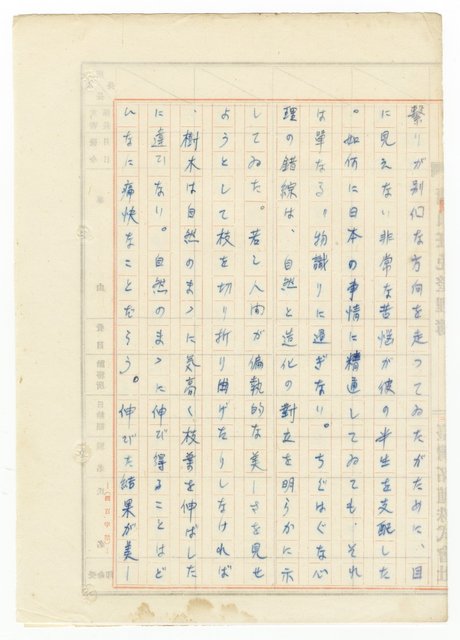 繫りが別們な方向を走つてゐたがために、目
に見えない非常な苦惱が彼の半生を支配した
。如何に日本の事情に精通してゐても、それ
は單なる物識りに過ぎない。ちぐはぐな心
理の錯綜は、自然と造化の對立を明らかに示
してゐた。若し人間が偏執的な美しさを見せ
ようとして枝を切り折り曲げたりしなければ
、樹木は自然のまゝに気高く枝葉を伸ばした
に違ひない。自然のまゝに伸び得ることはど
んなに痛快なことだらう。伸びた結果が美し